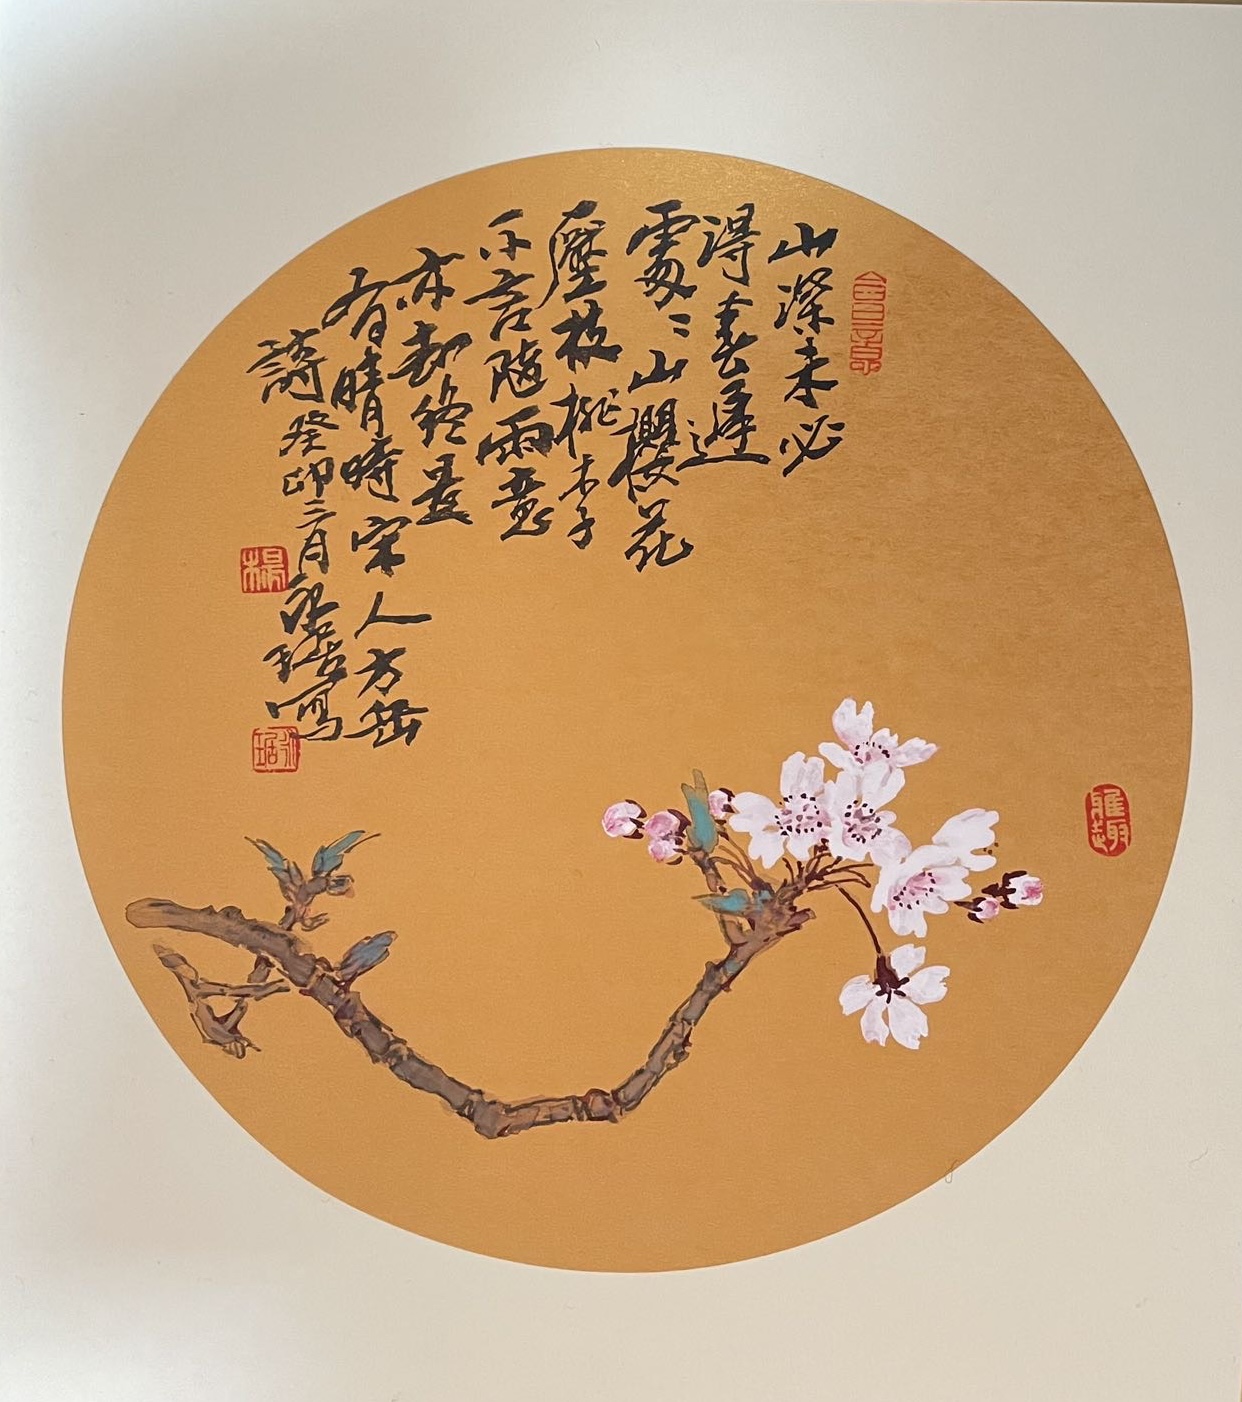 山深未必
得春遲
處〻山櫻花
壓枝桃李
不言隨雨意
亦却終是
有晴時宋人方岳
詩癸卯三月永琚寫
楊
永琚
雅趣